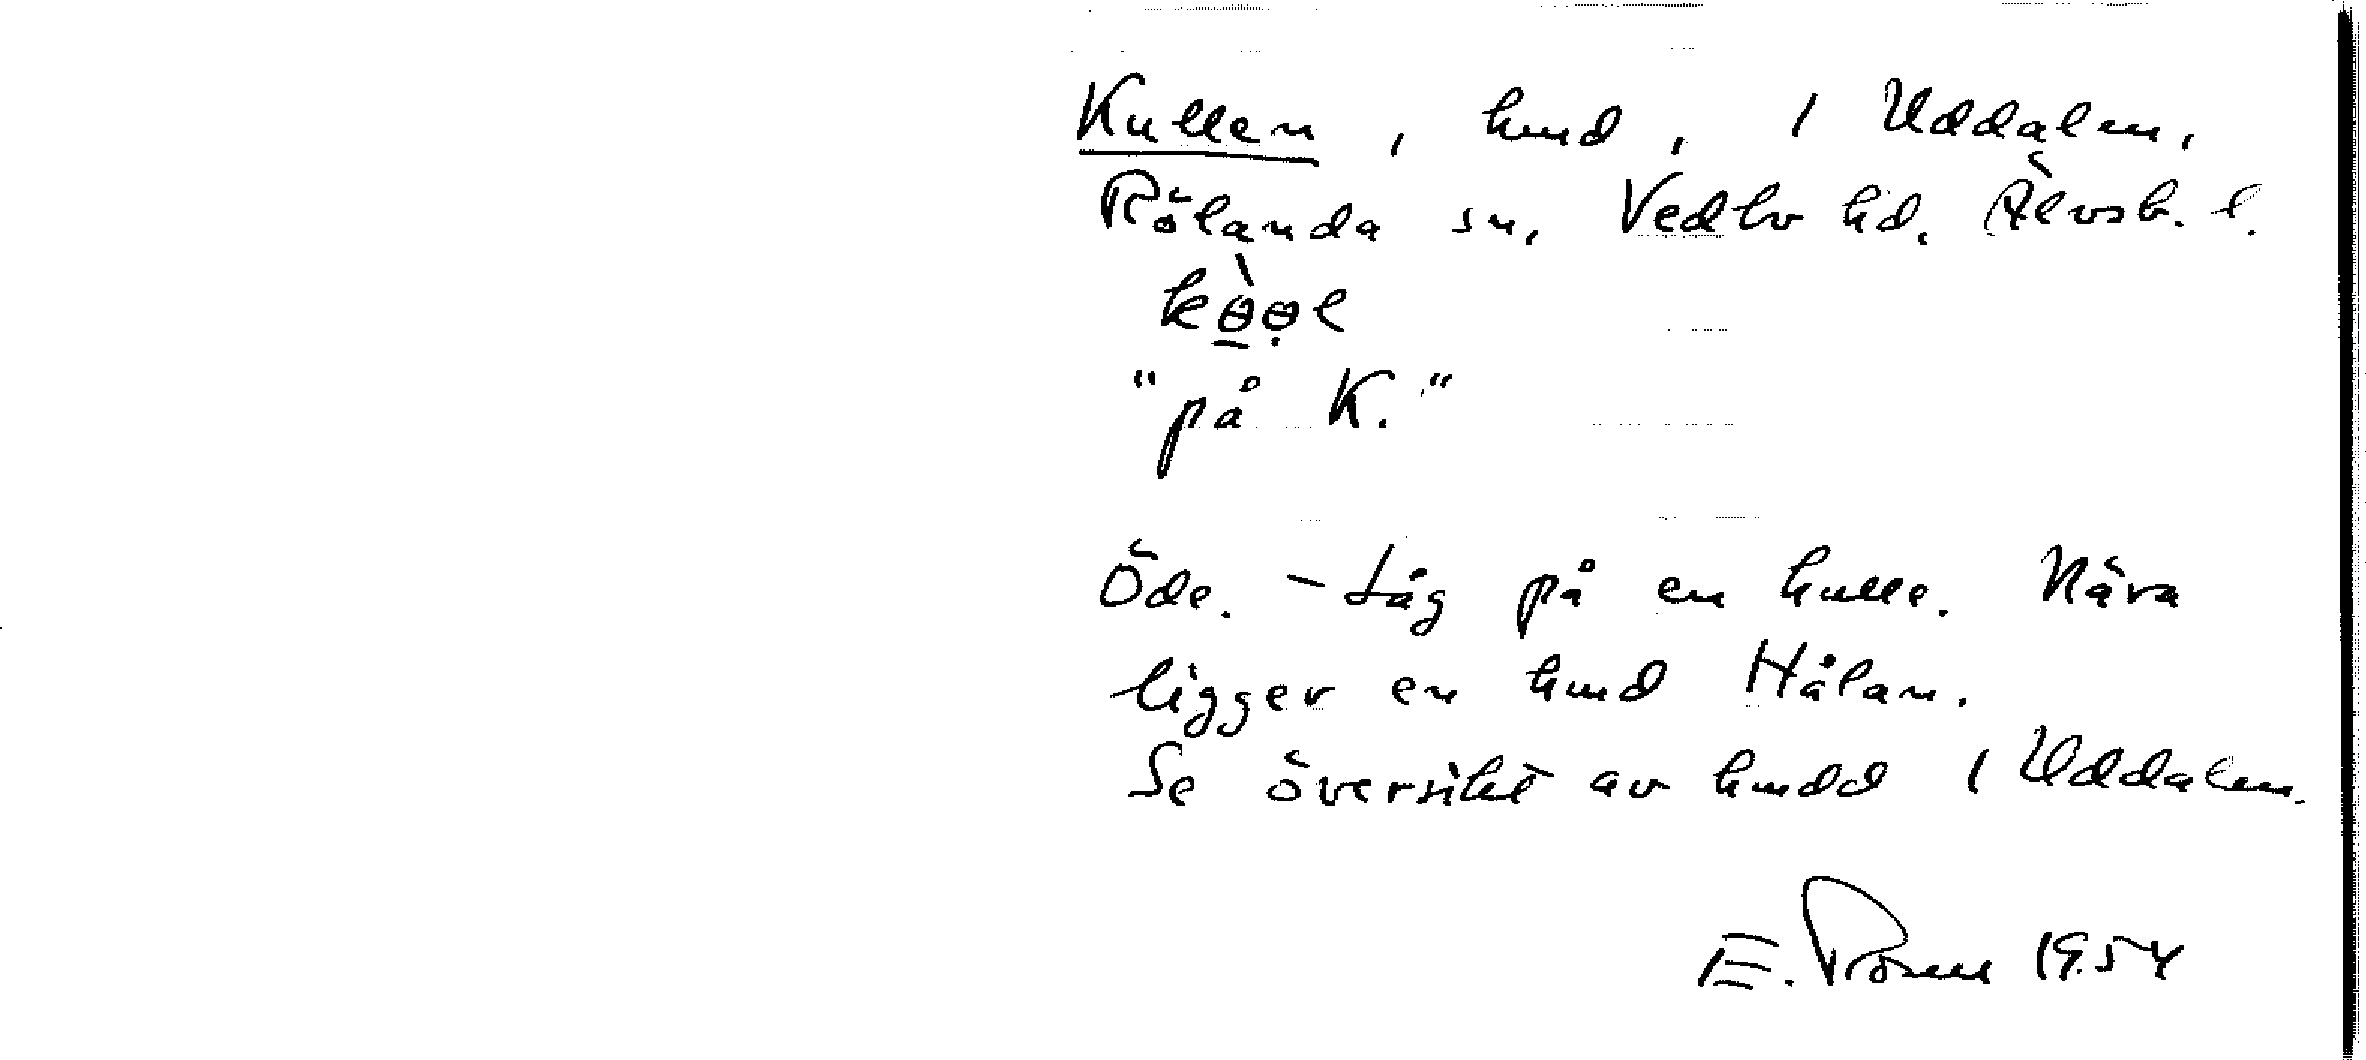 Kullen, hmd, i Uddalen,
Rölanda sn, Vedbo hd. Älvsb. l.
"på K."
Öde. - Låg på en kulle. Nära
ligger en hmd Hålan.
Se översikt av hmdd i Uddalen.
E. 1954